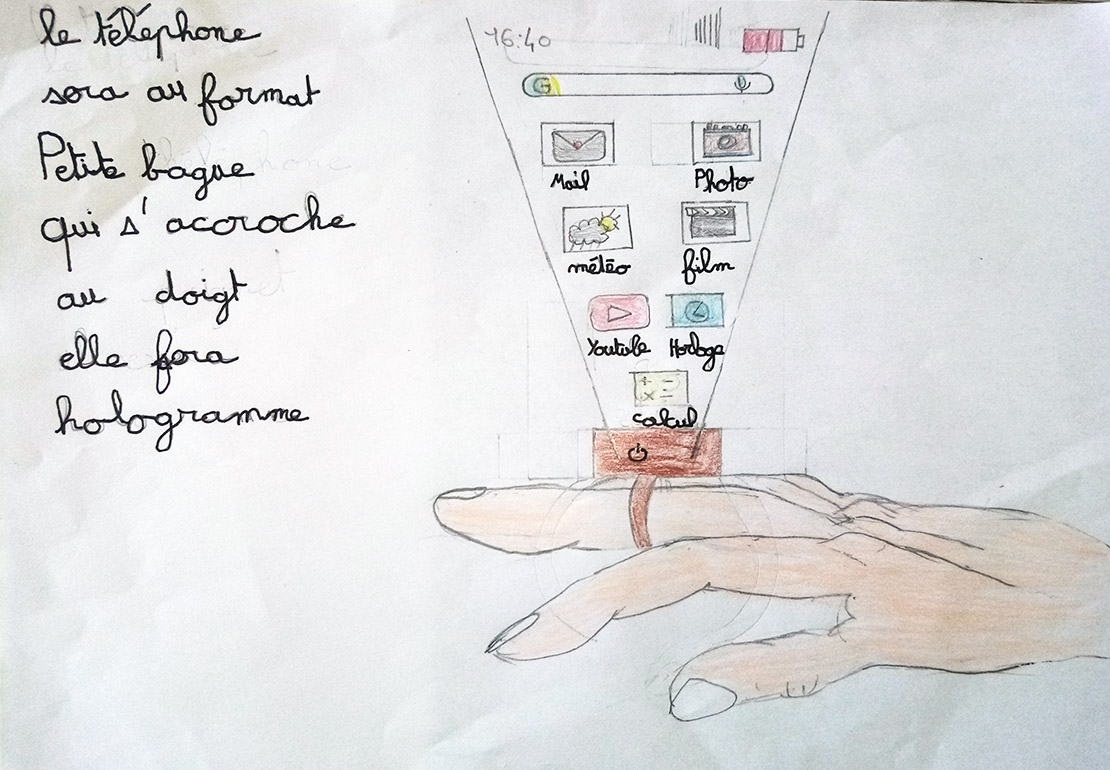 le téléphone
sera au format
Petite bague
qui s'accroche
au doigt
elle fera
hologramme
16:40
G
Mail
Photo
météo
film
Youtube
Horloge
calcul